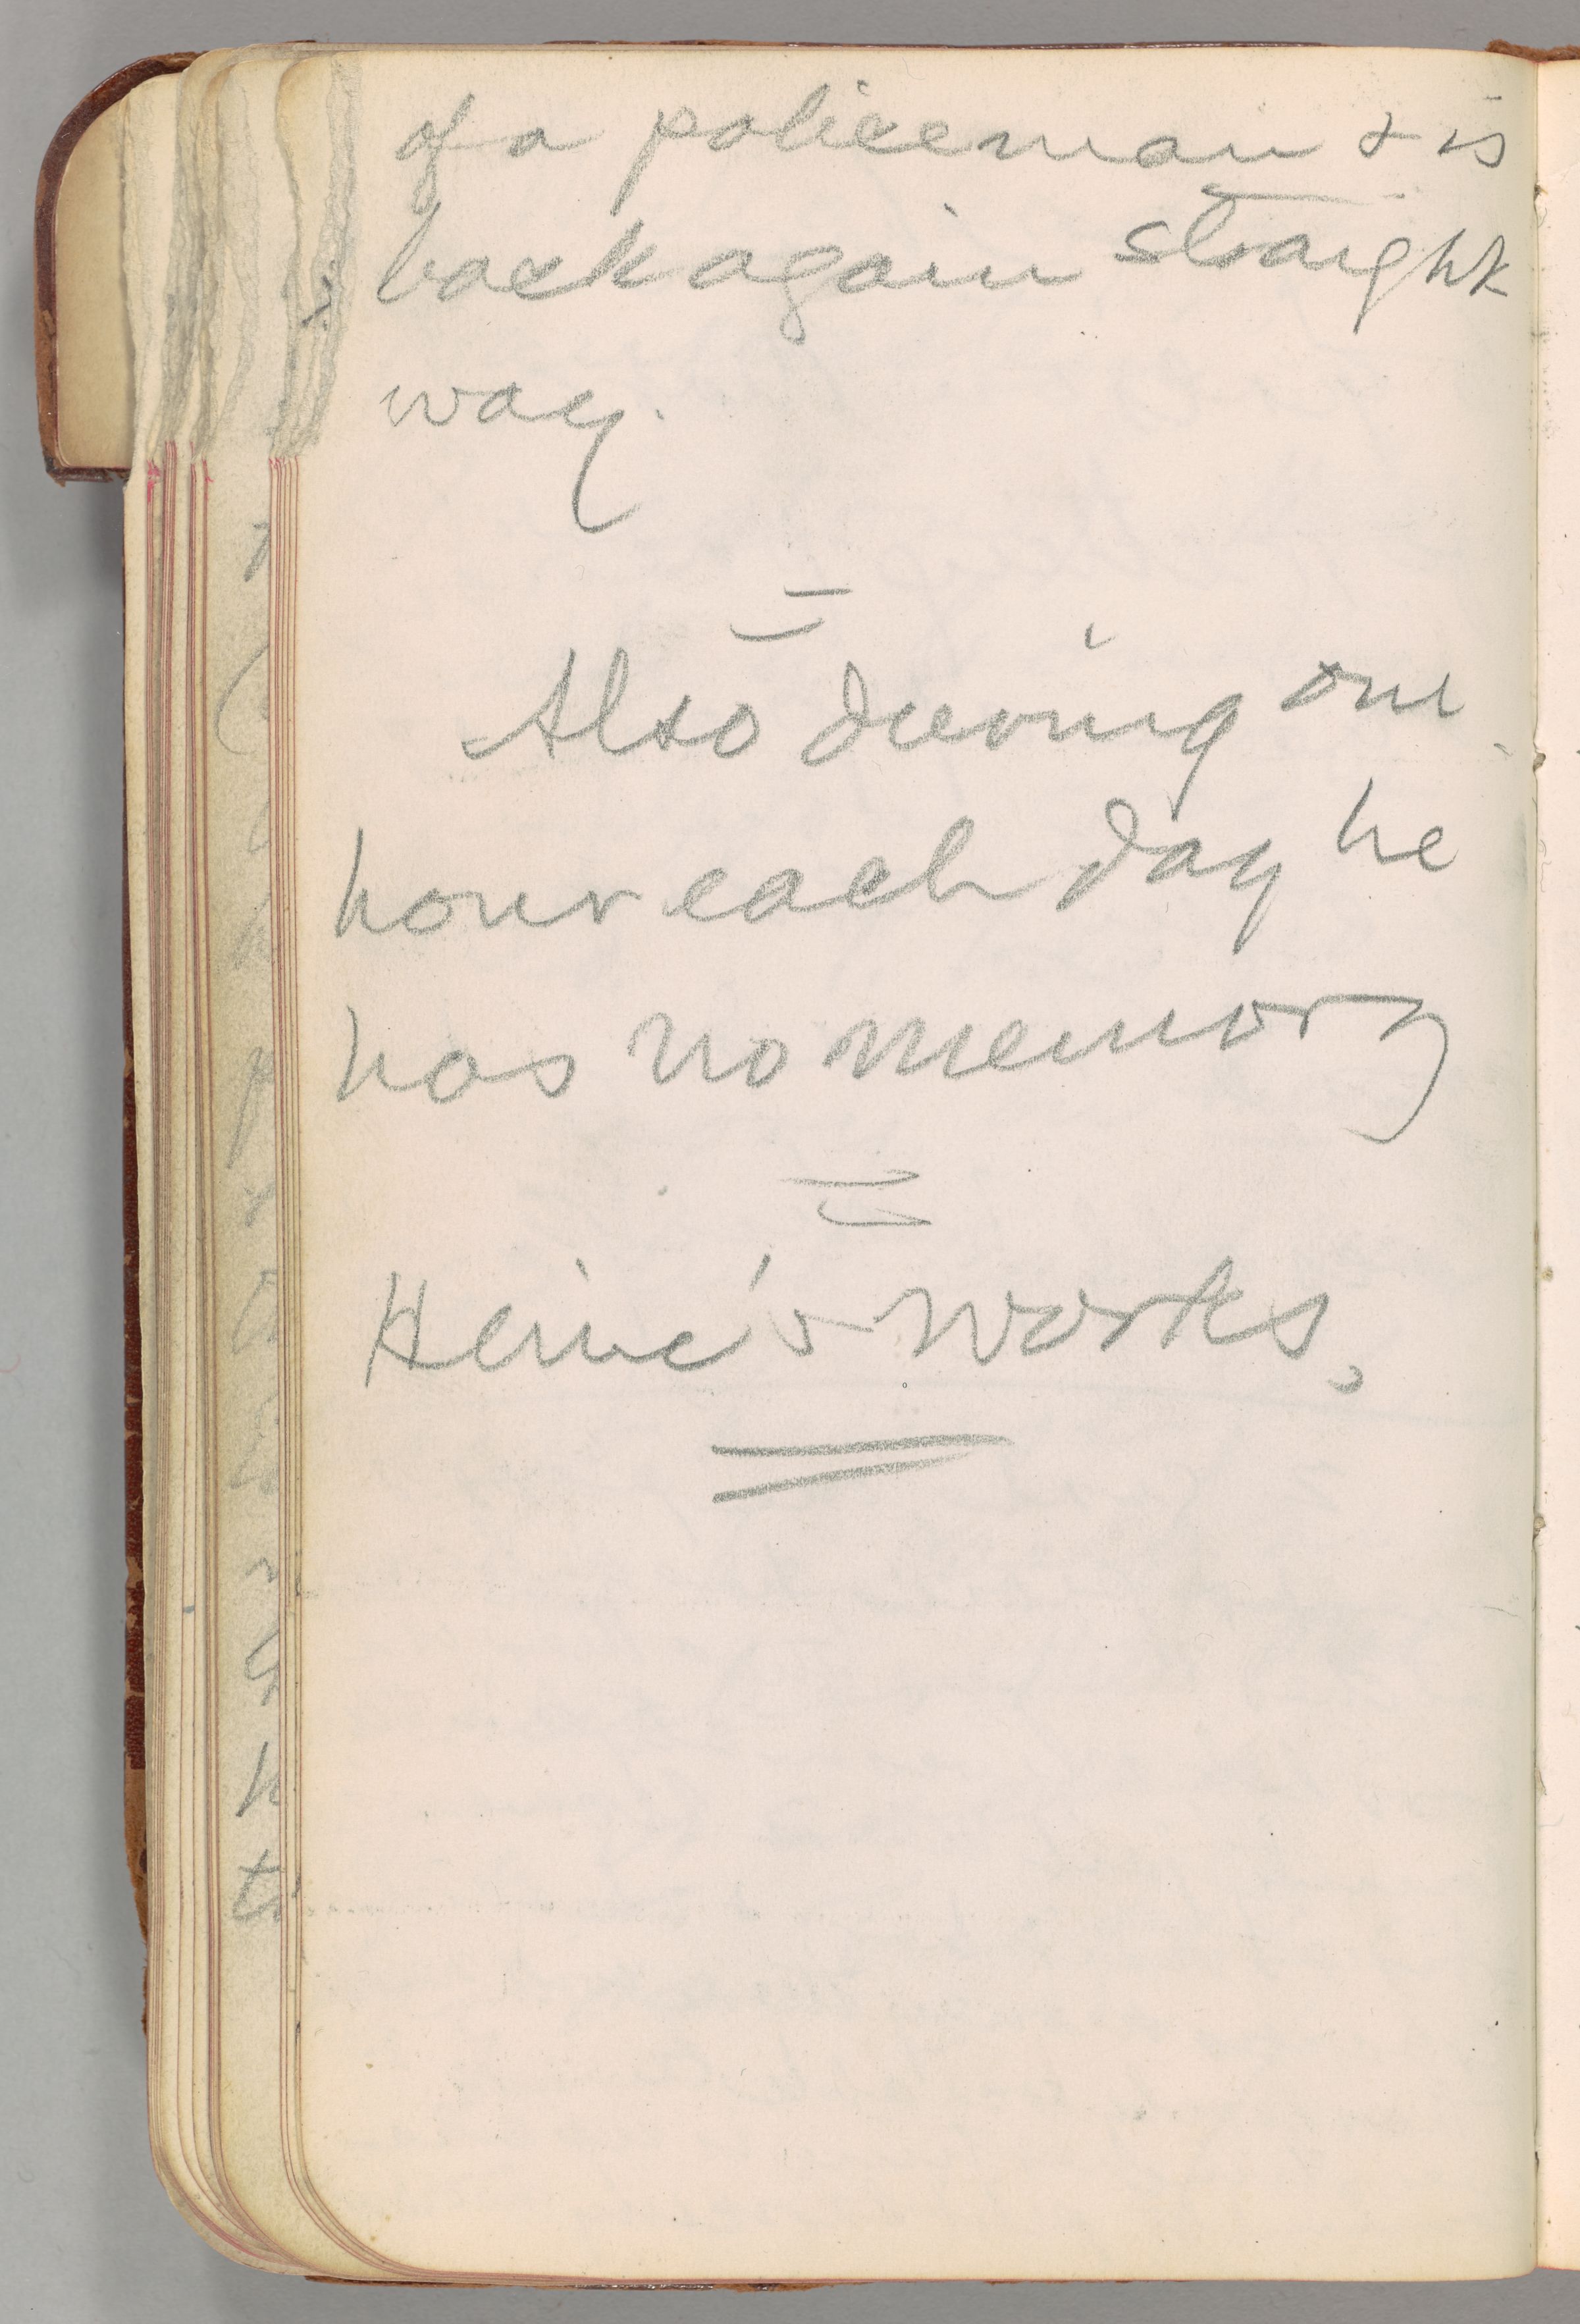 of a policeman & is
back again straight
way.
Also during one
hour each day he
has no memory
Heine's Works.